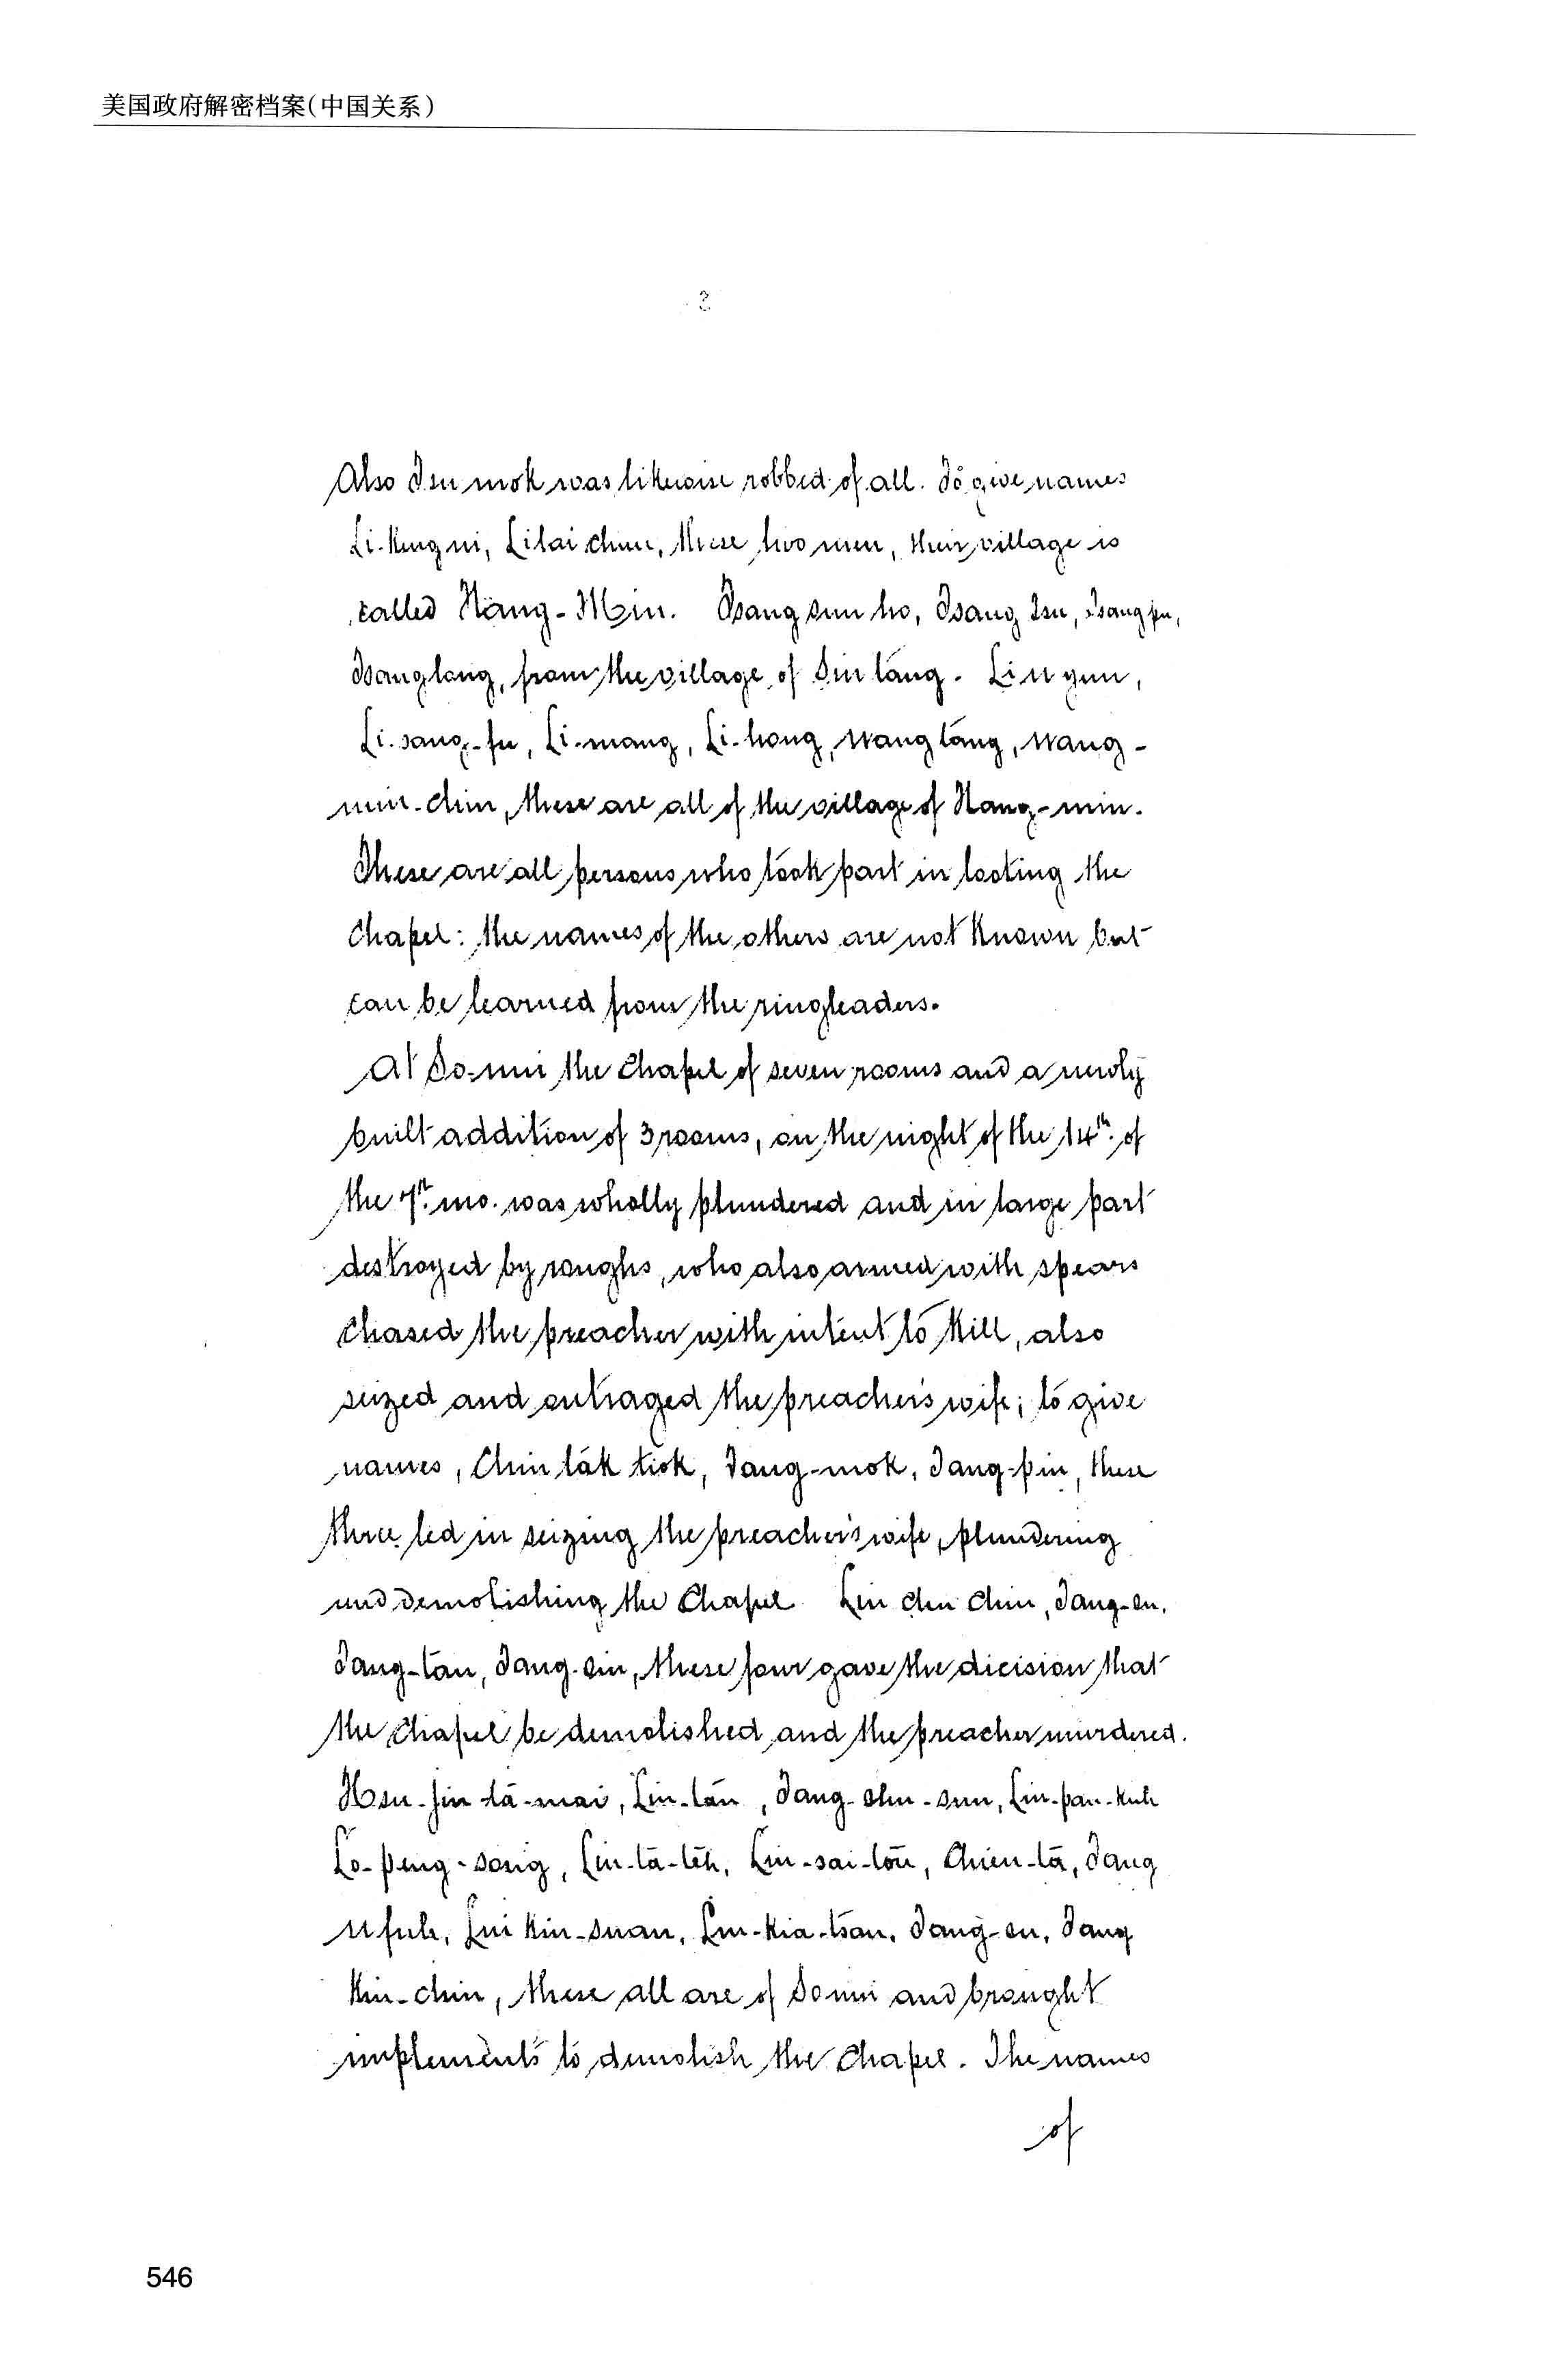 美国政府解密档案(中国关系)
2
Also Tsu mok was likewise robbed of all. To give names
Li-Keng ni, Li lai chun, these two men, their village is
called Hang-Min. Tsang sun ho, Tsang Tsu, Tsang fu,
Tsang long, from the village of Sin tang. Li u yun,
Li-sang-fu, Li-mang, Li-hong, Wang tang, Wang-
min-chin, these are all of the village of Hang-min.
These are all persons who took part in looting the
Chapel: the names of the others are not known but
can be learned from the ringleaders.
At So-mi the Chapel of seven rooms and a newly
built addition of 3 rooms, on the night of the 14th. of
the 7th. mo. was wholly plundered and in large part
destroyed by roughs, who also armed with spears
chased the preacher with intent to kill, also
seized and outraged the preacher's wife; to give
names, Chin tak tiok, Tang-mok, Tang-pin, these
three led in seizing the preacher's wife, plundering
and demolishing the Chapel. Lin chu chin, Tang-en,
Tang-tan, Tang-sin, these four gave the dicision that
the Chapel be demolished and the preacher murdered.
Hsu-jin-ta-mai, Lin-tan, Tang-shu-sun, Lin-pan-kuh
Lo-peng-song, Lin-ta-teh, Lin-sai-tou, Chien-ta, Tang
u fuh, Lin kin-suan, Lin-kia-tsan, Tang-en, Tang
kin-chin, these all are of So mi and brought
implements to demolish the Chapel. The names
of
546